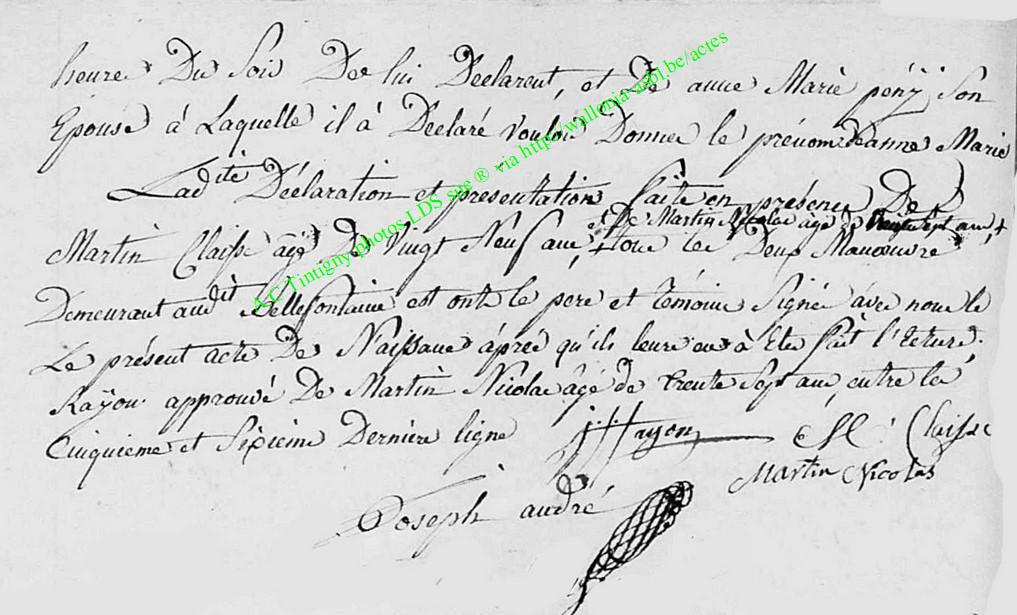 heure Du Soir De lui Déclarent, et De anne Marie pény Son
Epouse à Laquelle il à Declaré vouloir Donner le prénom deanne Marie
Ladite Déclaration et présentation faite en présence De
+ De Martin Nicolas âgé de trente sept ans, +
Martin Claisse âgé De Vingt Neuf ans, et + tous les Deux Manœuvre
Demeurant audit Bellefontaine est onts le pere et témoins Signé avec nous le
Le présent acte De Naissance aprés qu'ils leurs en à Eté fait l'ecture.
Rayon approuvé De Martin Nicolas âgé de trente Sept ans, entre les
Cinquieme et Sixieme Derniere ligne
JHayon
Claisse
Martin Nicolas
Joseph andré
A.C. Tintigny photos LDS site ® via http://wallonia-asbl.be/actes